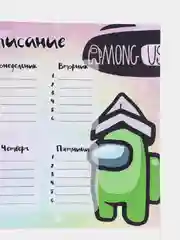 писание
AMONG US
недельник Вторник
1.
2.
3.
4.
5.
6.
Четверг Пятница
1.
2.
3.
4.
5.
6.